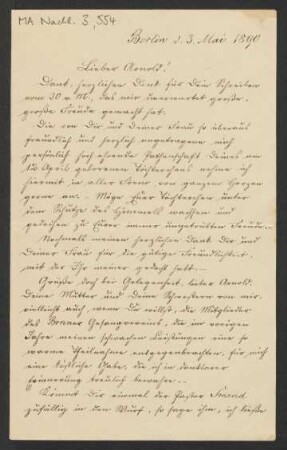 MA Nachl. 3,554
Berlin d. 3. Mai 1890
Lieber Arnold!
Dank, herzlichen Dank für Dein Schreiben
vom 30 v. M., das mir unerwartet große,
große Freude gemacht hat.
Die von Dir und Deiner Frau so überaus
freundlich und herzlich angetragene, mich
persönlich hoch ehrende Pathenschaft Deines am
April geborenen Töchterchens nehme ich
hiermit in aller Form von ganzem Herzen
gerne an. Möge Euer Töchterchen unter
dem Schutze des Himmels wachsen und
gedeihen zu Eurer immer ungetrübten Freude.
Nochmals meinen herzlichen Dank Dir und
Deiner Frau für die gütige Freundlichkeit,
mit der Ihr meiner gedacht habt.
Grüße doch bei Gelegenheit, lieber Arnold,
Deine Mutter und Deine Schwestern von mir,
vielleicht auch, wenn Du willst, die Mitglieder
des Bonner Gesangvereins, die im vorigen
Jahre meinen schwachen Leistungen eine so
warme Theilnahme entgegenbrachten, für mich
eine köstliche Gabe, die ich in dankbarer
Erinnerung treulich bewahre.
Kommt Dir einmal der Pastor
zufällig in den Wurf, so sage ihm, ich ließe